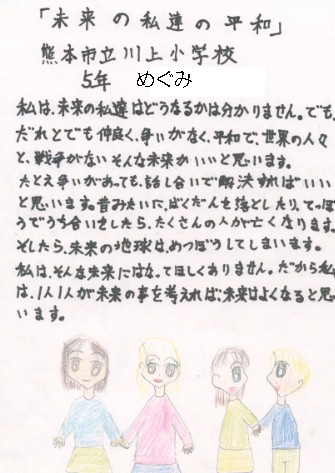 「未来の私達の平和」
熊本市立川上小学校
5年 めぐみ
私は、未来の私達はどうなるかは分かりません。でも、
だれとでも仲良く、争いがなく、平和で、世界の人々
と、戦争がないそんな未来がいいと思います。
たとえ争いがあっても、話し合いで解決すればいい
と思います。昔みたいに、ばくだんを落としたり、てっぽ
うでうち合いをしたら、たくさんの人が亡くなります。
そしたら、未来の地球は、めつぼうしてしまいます。
私は、そんな未来にはなってほしくありません。だから私
は、1人1人が未来の事を考えれば、未来はよくなると思
います。